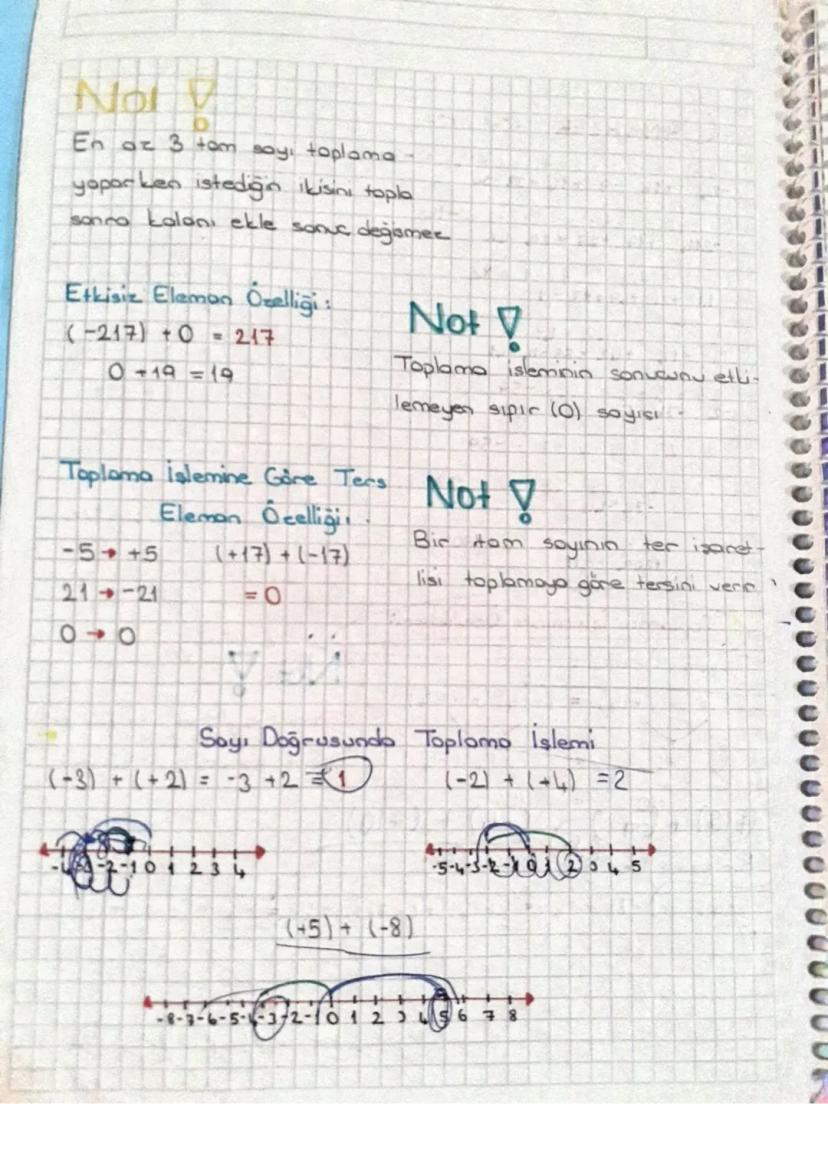 Not !
En az 3 tam sayı toplama
yaparken istediğin ikisini topla
sonra kalanı ekle sonuç değişmez
Etkisiz Eleman Özelliği:
(-217) + 0 = 217
0 + 19 = 19
Not !
Toplama işleminin sonucunu etki-
lemeyen sıpır (0) sayısı
Toplama İşlemine Göre Ters
Eleman Özelliği.
-5 → +5 (+17) + (-17)
21 → -21 = 0
0 → 0
Not !
Bir tam sayının ter işaret-
lisi toplamaya göre tersini verir
Sayı Doğrusunda Toplama İşlemi
(-3) + (+2) = -3 +2 = 1
(-2) + (+4) = 2
-2 -1 0 1 2 3 4
-5 -4 -3 -2 -1 0 1 2 3 4 5
(+5) + (-8)
-8 -7 -6 -5 -4 -3 -2 -1 0 1 2 3 4 5 6 7 8